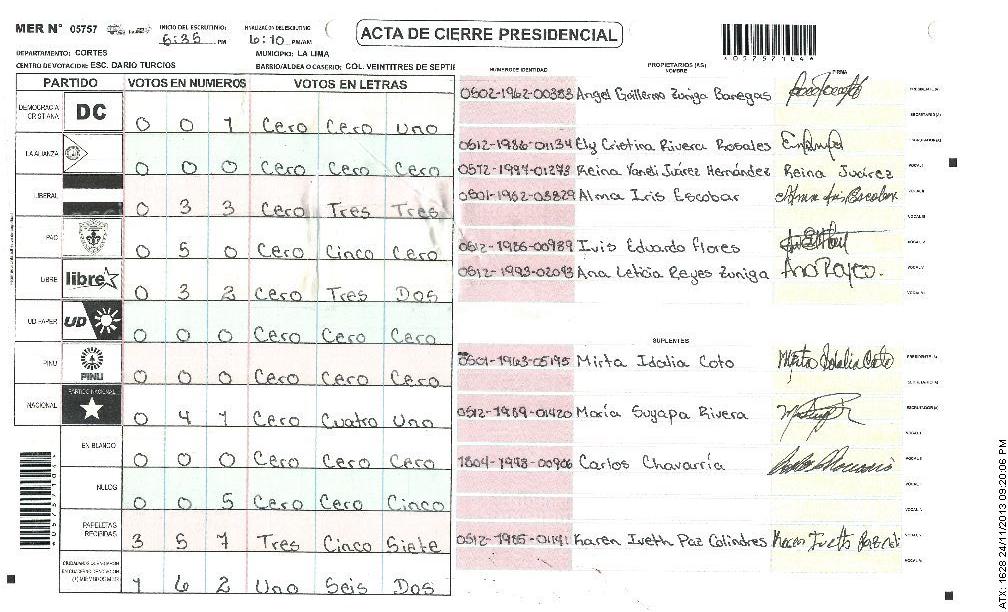 MER N° 05757 INICIO DEL ESCRUTINIO: FINALIZACION DEL ESCRUTINIO
6:35 PM 6:10 PM/AM
ACTA DE CIERRE PRESIDENCIAL
DEPARTAMENTO: CORTES MUNICIPIO: LA LIMA
CENTRO DE VOTACION: ESC. DARIO TURCIOS BARRIO/ALDEA O CASERIO: COL. VEINTITRES DE SEPTIE
PARTIDO VOTOS EN NUMEROS VOTOS EN LETRAS
DEMOCRACIA CRISTIANA DC 0 0 1 Cero Cero Uno
LA ALIANZA 0 0 0 Cero Cero Cero
LIBERAL 0 3 3 Cero Tres Tres
PAC 0 5 0 Cero Cinco Cero
LIBRE libre 0 3 2 Cero Tres Dos
UD FAPER UD 0 0 0 Cero Cero Cero
PINU PINU 0 0 0 Cero Cero Cero
NACIONAL PARTIDO NACIONAL 0 4 1 Cero Cuatro Uno
EN BLANCO 0 0 0 Cero Cero Cero
NULOS 0 0 5 Cero Cero Cinco
PAPELETAS RECIBIDAS 3 5 7 Tres Cinco Siete
1 6 2 Uno Seis Dos
NUMERO DE IDENTIDAD PROPIETARIOS (AS) NOMBRE FIRMA
0502-1962-00383 Angel Guillermo Zuniga Banegas
0512-1986-01134 Ely Cristina Rivera Rosales
0512-1997-01273 Reina Yandi Juárez Hernández Reina Juárez
0501-1962-03829 Alma Iris Escobar Alma Iris Escobar
0512-1986-00989 Ivis Eduardo Flores
0512-1993-02093 Ana Leticia Reyes Zuniga
SUPLENTES
0501-1963-05195 Mirta Idalia Coto Mirta Idalia Coto
0512-1989-01420 María Suyapa Rivera
1804-1998-00906 Carlos Chavarría
0512-1985-01191 Karen Iveth Paz Colindres
ATX: 1628 24/11/2013 09:20:06 PM